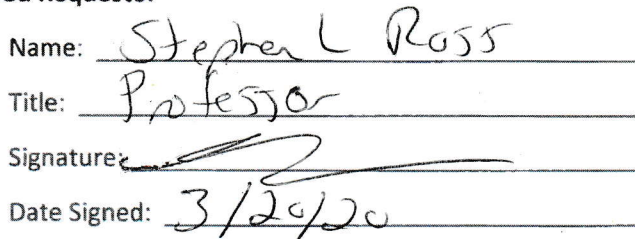 Requests:
Name: Stephen L Ross
Title: Professor
Signature:
Date Signed: 3/20/20